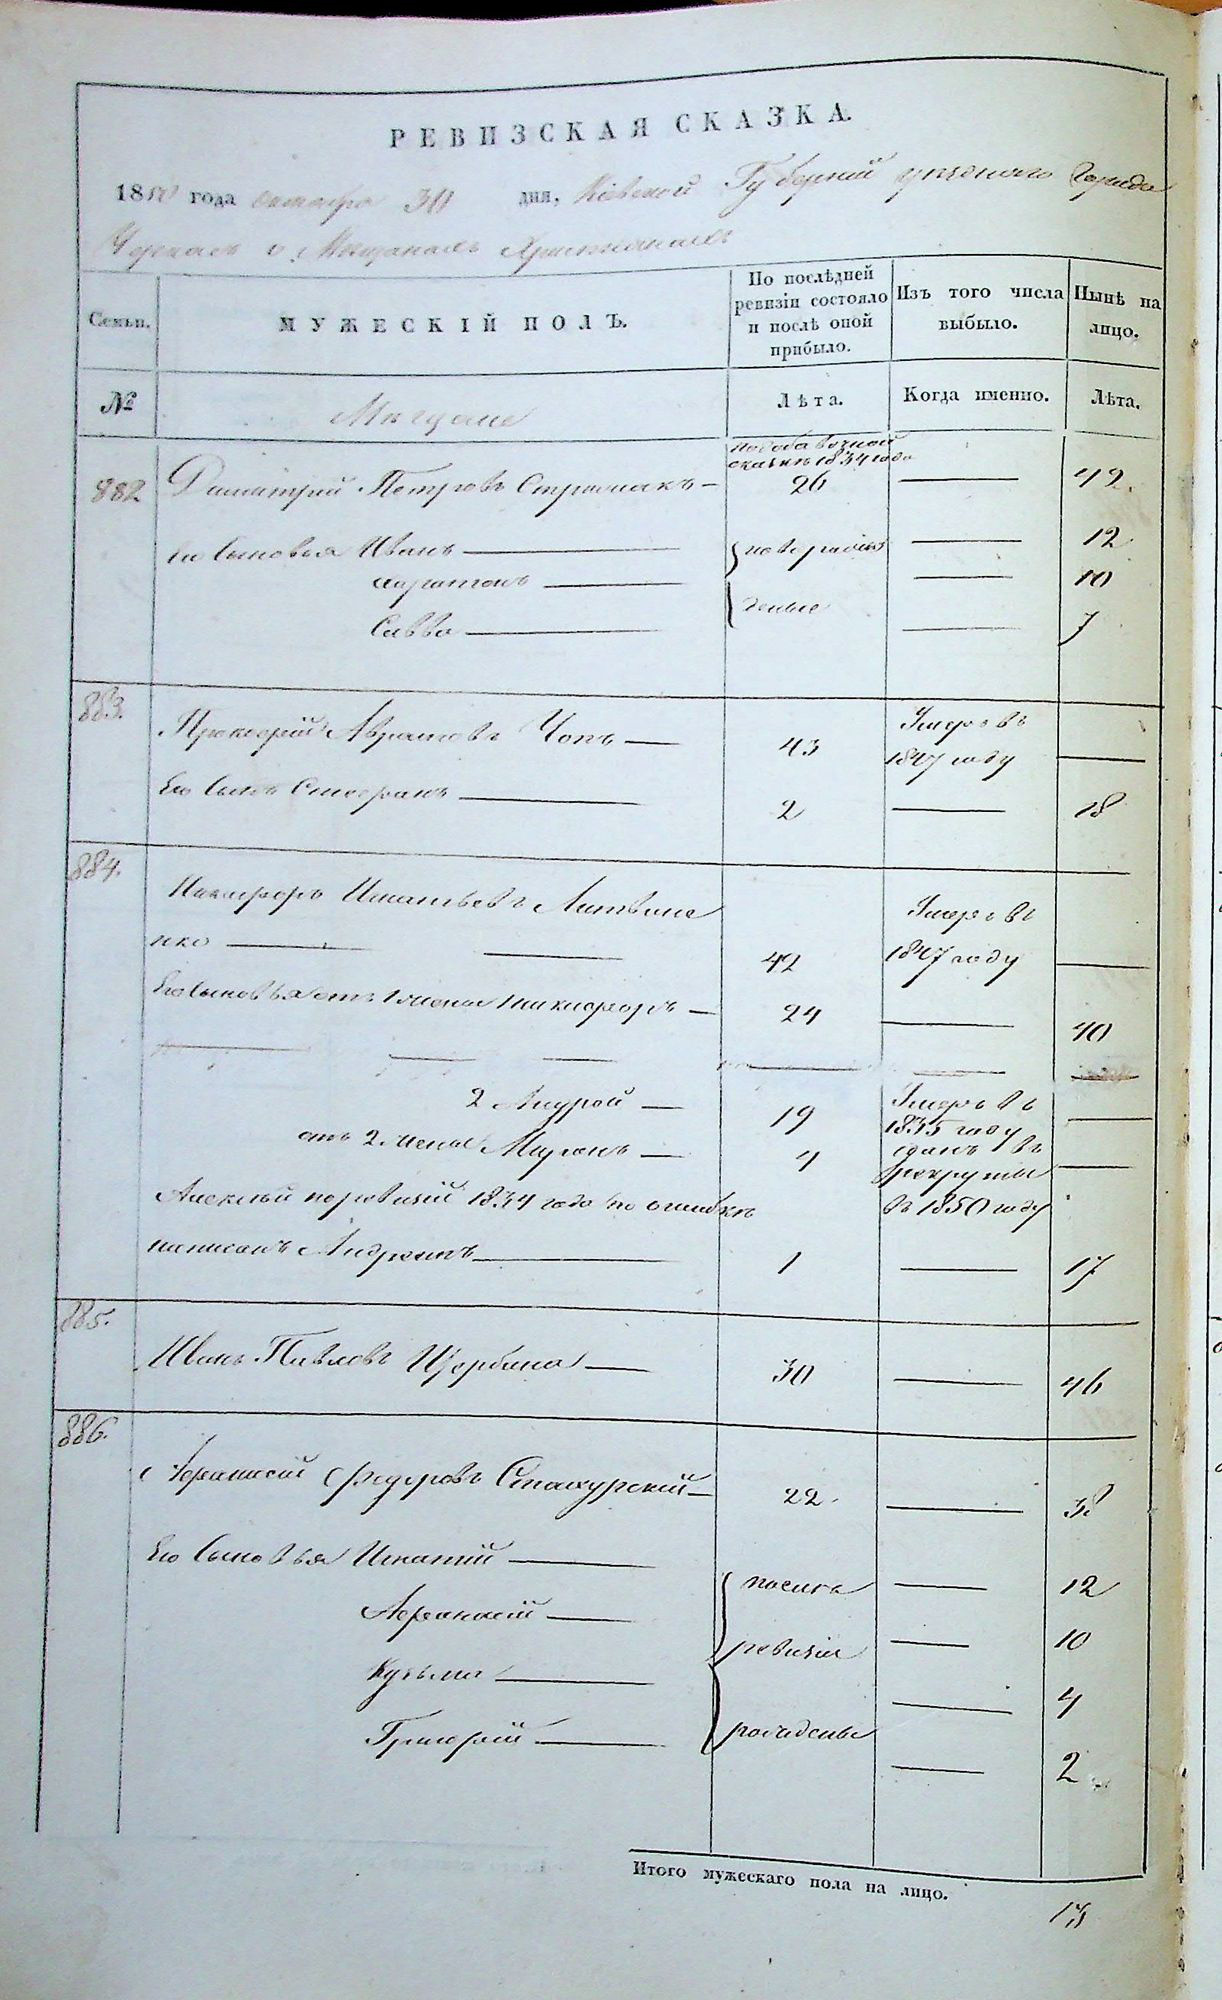 РЕВИЗСКАЯ СКАЗКА.
1850 года октября 30 дня, Кіевской Губерніи уѣзднаго Города
Черкасъ о Мѣщанахъ Христіанахъ
Семьи.
МУЖЕСКІЙ ПОЛЪ.
По послѣдней ревизіи состояло и послѣ оной прибыло.
Изъ того числа выбыло.
Нынѣ на лицо.
№
Мѣщане
Лѣта.
Когда именно.
Лѣта.
по добавочной
сказкѣ 1834 года
882 Димитрій Петровъ — 26 — 42.
его сыновья Иванъ — — 12
Харитонъ — — 10
Савва — — 7
883. Прокофій Аврамовъ Чопъ — 43 Умеръ въ 1847 году —
Его сынъ Стефанъ — 2 — 18
884. Никифоръ Игнатьевъ Литвине
нко — 42 Умеръ въ 1847 году —
Его сыновья отъ 1 жены Никифоръ — 24 — 40
2 Андрей — 19 Умеръ въ 1835 году —
отъ 2. жены Миронъ — 4 сданъ въ рекруты въ 1850 году —
Алексѣй по ревизіи 1834 года по ошибкѣ
написанъ Андреемъ — 1 — 17
885. Иванъ Павловъ Щербина — 30 — 46
886. Афанасій Федоровъ Стахурскій — 22. — 38
Его сыновья Игнатій — послѣ — 12
Афанасій — — 10
ревизіи
Кузьма — — 4
Григорій — рожденые — 2
Итого мужескаго пола на лицо. 13